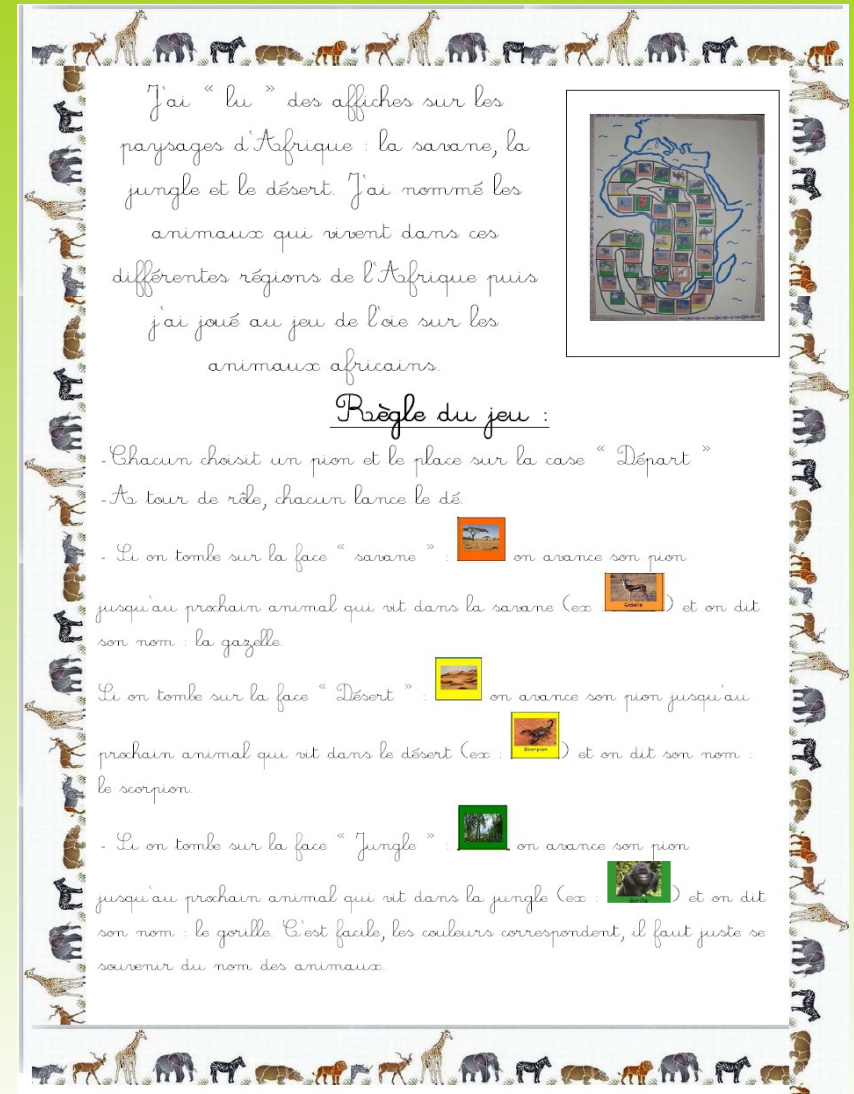 J'ai " lu " des affiches sur les
paysages d'Afrique : la savane, la
jungle et le désert. J'ai nommé les
animaux qui vivent dans ces
différentes régions de l'Afrique puis
j'ai joué au jeu de l'oie sur les
animaux africains.
Règle du jeu :
-Chacun choisit un pion et le place sur la case " Départ "
-A tour de rôle, chacun lance le dé.
- Si on tombe sur la face " savane " : on avance son pion
jusqu'au prochain animal qui vit dans la savane (ex : Gazelle ) et on dit
son nom : la gazelle.
Si on tombe sur la face " Désert " : on avance son pion jusqu'au
prochain animal qui vit dans le désert (ex : Scorpion ) et on dit son nom :
le scorpion.
- Si on tombe sur la face " Jungle " : on avance son pion
jusqu'au prochain animal qui vit dans la jungle (ex : Gorille ) et on dit
son nom : le gorille. C'est facile, les couleurs correspondent, il faut juste se
souvenir du nom des animaux.